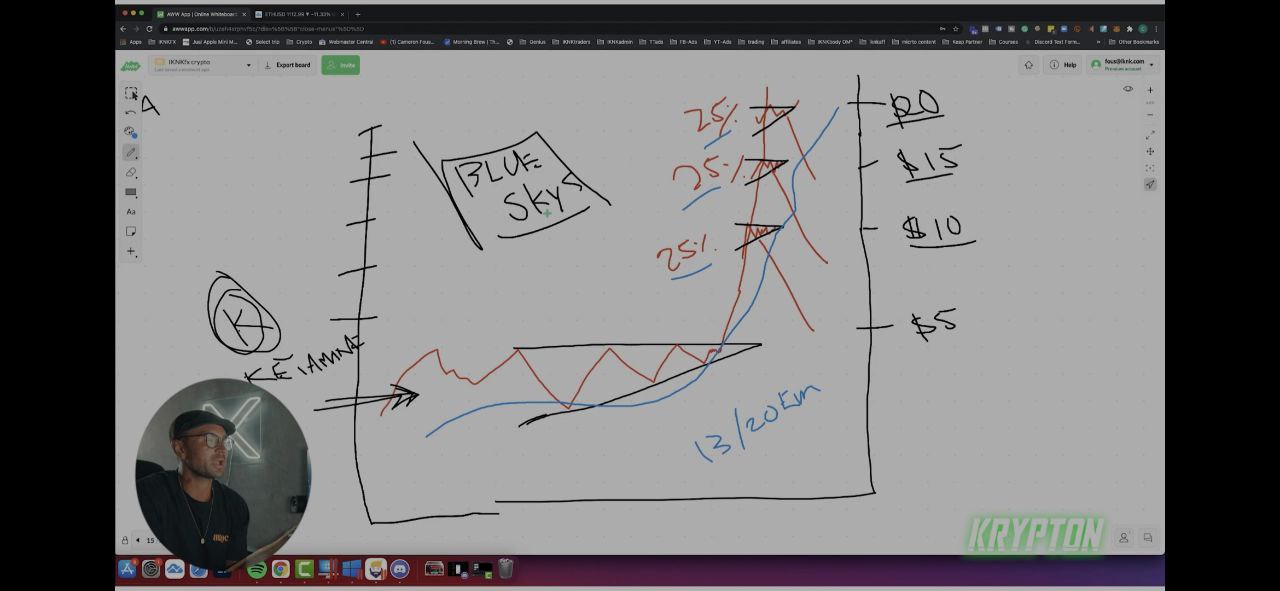 AWW App | Online Whiteboard
ETHUSD 1112.99 ▼ −11.33%
Apps
IKNKFX
Just Apple Mini M...
Select trip
Crypto
Webmaster Central
(1) Cameron Fous...
Morning Brew | Th...
Genius
IKNKtraders
IKNKadmin
FB-Ads
YT-Ads
trading
affiliates
Keep Partner
Courses
Discord Text Form...
Other Bookmarks
IKNKfx crypto
Export board
Invite
Help
fous@iknk.com
Premium account
A
Aa
BLUE
SKYS
25%
25%
25%
$20
$15
$10
$5
K
KETAMINE
13/20 Em
15
KRYPTON